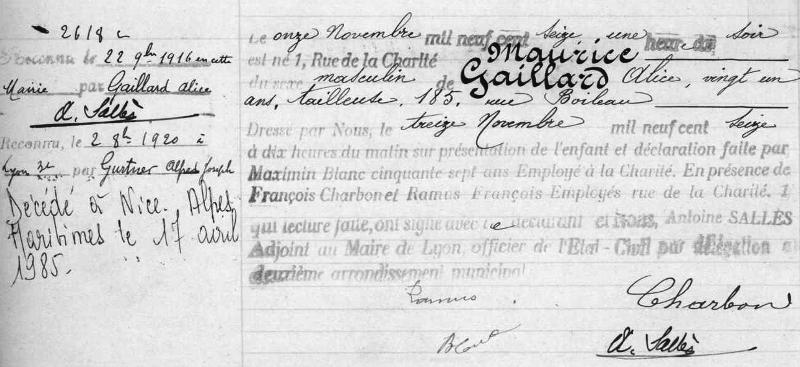 2618
Reconnu le 22 9bre 1916 en cette
Mairie par Gaillard Alice
A. Sallès
Reconnu, le 2 8bre 1920 à
Lyon 3e par Gurtner Alfred Joseph
Décédé à Nice. Alpes
Maritimes le 17 avril
1985.
Le onze Novembre mil neuf cent seize une heure du soir
est né 1, Rue de la Charité Maurice
du sexe masculin de Gaillard Alice, vingt un
ans, tailleuse, 185, rue Boileau
Dressé par Nous, le treize Novembre mil neuf cent seize
à dix heures du matin sur présentation de l'enfant et déclaration faite par
Maximin Blanc cinquante sept ans Employé à la Charité. En présence de
François Charbon et Ramus François Employés rue de la Charité. 1
qui lecture faite, ont signé avec le déclarant et Nous, Antoine SALLÈS
Adjoint au Maire de Lyon, officier de l'Etat-Civil par délégation au
deuxième arrondissement municipal
Ramus
Charbon
Blanc
A. Sallès